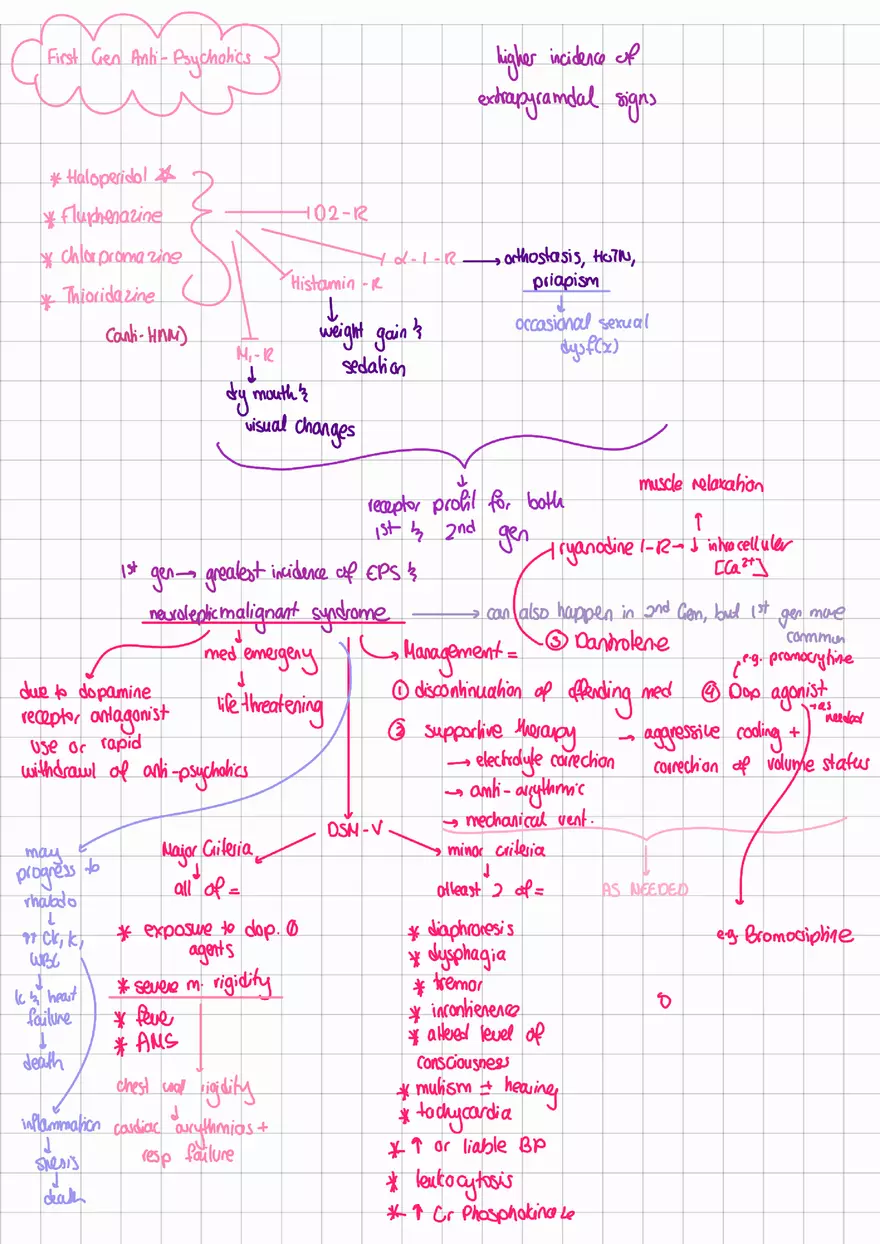 First Gen Anti-Psychotics
higher incidence of
extrapyramdal signs
* Haloperidol ☆
* Fluphenazine
* Chlorpromazine
* Thioridazine
(anti-HAM)
D2-R
α-1-R → orthostasis, HoTN,
priapism
occasional sexual
dysf(x)
Histamin-R
weight gain &
sedation
M1-R
dry mouth &
visual changes
receptor profil for both
1st & 2nd gen
muscle relaxation
↑
ryanodine 1-R → ↓ intracelluler
[Ca²⁺]
1st gen → greatest incidence of EPS &
neurolepticmalignant syndrome → can also happen in 2nd Gen, but 1st gen more
common
due to dopamine
receptor antagonist
use or rapid
withdrawl of anti-psychotics
med emergeny
↓
life threatening
→ Management =
① discontinuation of offending med
② supportive therapy → aggressive cooling +
correction of volume status
→ electrolyte correction
→ anti-arrythmic
→ mechanical vent.
③ Dantrolene
e.g. promocriptine
④ Dop agonist
→ as
needed
AS NEEDED
e.g. Bromocriptine
DSM-V
Major Criteria
↓
all of =
* exposure to dop. ⊖
agents
* severe m. rigidity
* fever
* AMS
chest wall rigidity
↓
cardiac arrythmias +
resp failure
minor criteria
↓
atleast 2 of =
* diaphoresis
* dysphagia
* tremor
* incontienence
* altered level of
consciousness
* mutism ±
* tachycardia
* ↑ or liable BP
* leukocytosis
* ↑ Cr Phosphokinase
may
progress to
rhabdo
↓
↑↑ CK, K,
WBC
↓
K & heart
failure
↓
death
inflammation
↓
↓
death
8